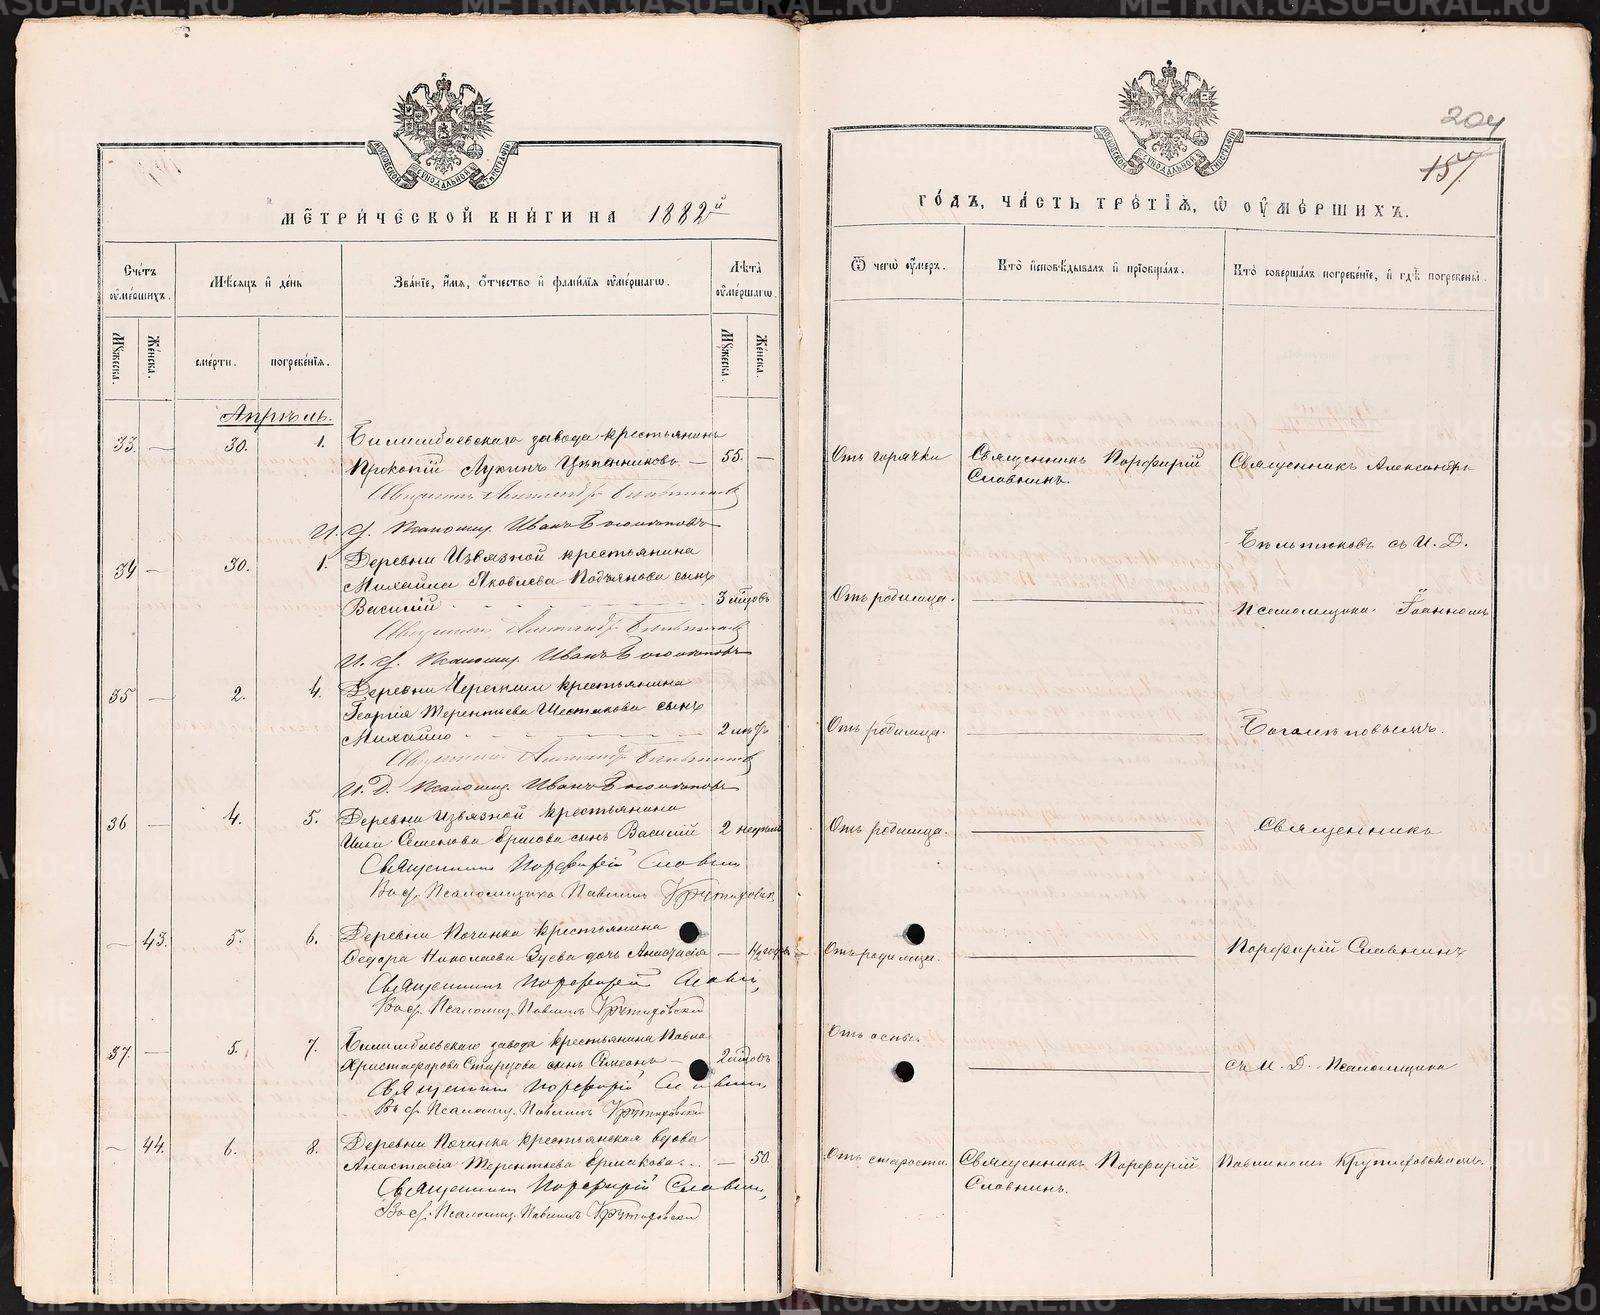 МОСКОВСКОЙ СѴНОДАЛЬНОЙ ТИПОГРАФІИ
МЕТРИЧЕСКОЙ КНИГИ НА 1882й
Счетъ умершихъ.
Мѣсяцъ и день
Званіе, имя, отчество и фамилія умершагѡ.
Лѣта умершагѡ.
Мужеска.
Женска.
смерти.
погребенія.
Мужеска.
Женска.
Апрѣль.
33 — 30. 1. Билимбаевскаго завода крестьянинъ
Прокопій Лукинъ Цѣпенниковъ — 55. —
Священникъ Александръ
И. д. Псаломщ. Иванъ Боголѣповъ
34 — 30. 1. Деревни Извязной крестьянина
Михаила Яковлева Подъянова сынъ
Василій 3 мцовъ
Священникъ Александръ
И. д. Псаломщ. Иванъ Боголѣповъ
35 — 2. 4. Деревни Черемши крестьянина
Георгія Терентьева Шестакова сынъ
Михаилъ 2 лѣтъ
Священникъ Александръ
И. Д. Псаломщ. Иванъ Боголѣповъ
36 — 4. 5. Деревни Извязной крестьянина
Ильи Семенова Ершова сынъ Василій 2 недѣль
Священникъ Порфирій Славнинъ
Псаломщика Павлинъ Крутиховскій
— 43. 5. 6. Деревни Починка крестьянина
Ѳедора Николаева Зуева дочь Анастасія — 1½ года
Священникъ Порфирій Славнинъ
Псаломщ. Павлинъ Крутиховскій
37. — 5. 7. Билимбаевскаго завода крестьянина Павла
Христофорова Старцова сынъ Симеонъ — 2 мцовъ
Священникъ Порфирій Славнинъ
Псаломщ. Павлинъ Крутиховскій
— 44. 6. 8. Деревни Починка крестьянская вдова
Анастасія Терентьева Ермакова — 50.
Священникъ Порфирій Славнинъ
Псаломщ. Павлинъ Крутиховскій
204
157
МОСКОВСКОЙ СѴНОДАЛЬНОЙ ТИПОГРАФІИ
ГОДЪ, ЧАСТЬ ТРЕТІЯ, Ѡ УМЕРШИХЪ.
Ѿ чегѡ умеръ.
Кто исповѣдывалъ и пріобщалъ.
Кто совершалъ погребеніе, и гдѣ погребены.
Отъ горячки Священникъ Порфирій Священникъ Александръ
Славнинъ.
Бѣльтюковъ съ И. Д.
Отъ родимца. Псаломщика Іоанномъ
Отъ родимца. Боголѣповымъ.
Отъ родимца. Священникъ
Отъ родимца. Порфирій Славнинъ
Отъ оспы. съ И. Д. Псаломщика
Отъ старости. Священникъ Порфирій Павлиномъ Крутиховскимъ.
Славнинъ.
METRIKI.GASO-URAL.RU